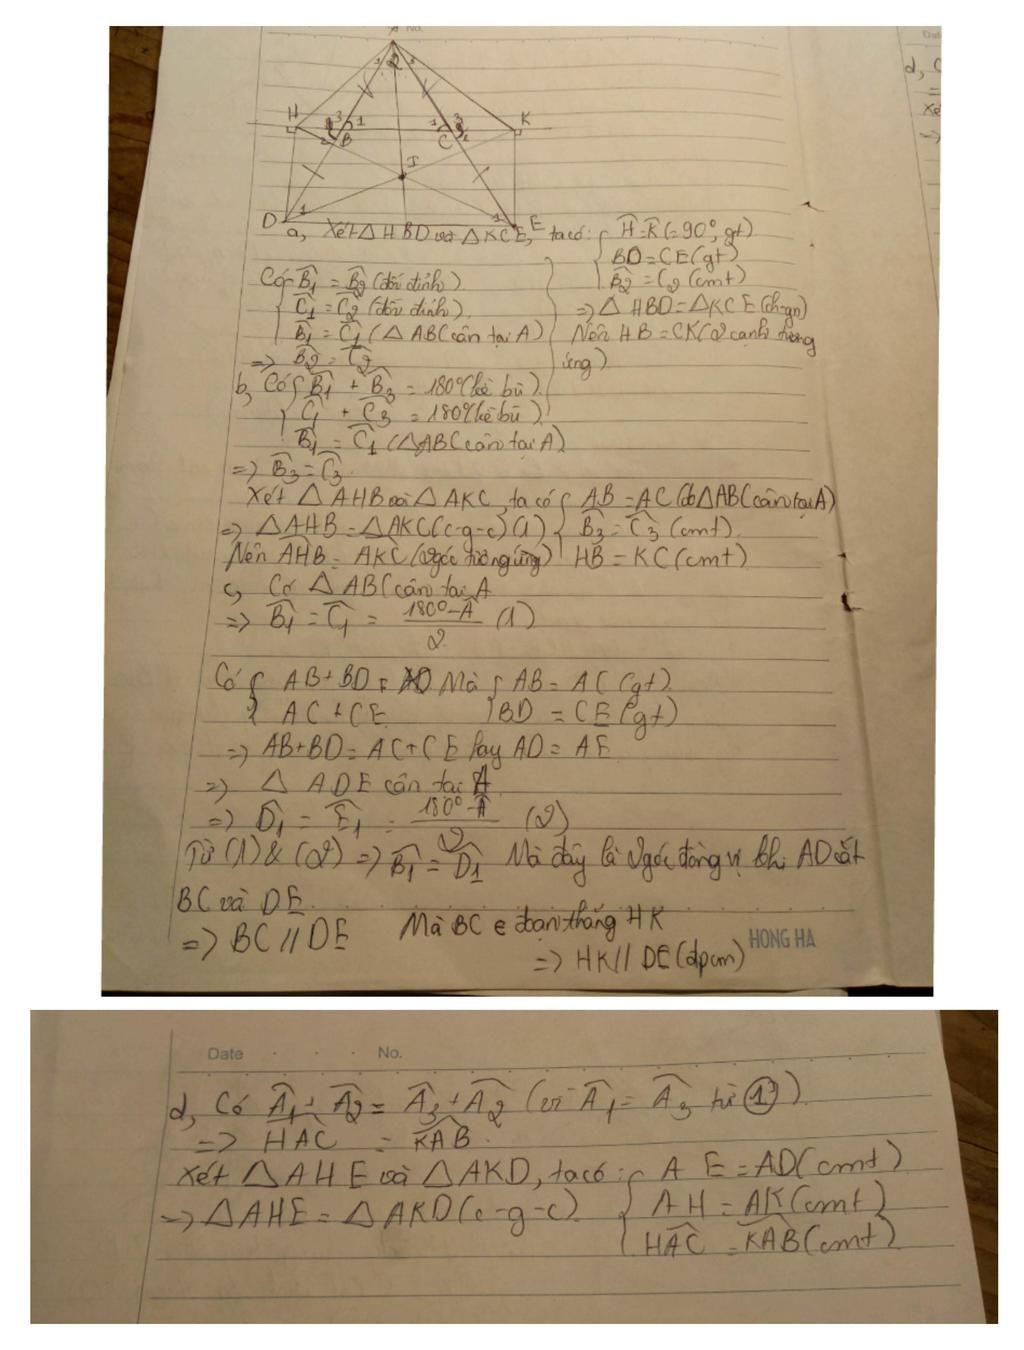 No.
A
H 3 1 B 2
1 3 C 2 K
I
D 1
1 E
a, Xét △ HBD và △ KCE, ta có: { Ĥ = K̂ (= 90°, gt)
BD = CE (gt)
B̂2 = Ĉ2 (cmt)
=> △ HBD = △ KCE (ch-gn)
Nên HB = CK (2 cạnh tương ứng)
Có { B̂1 = B̂2 (đối đỉnh)
Ĉ1 = Ĉ2 (đối đỉnh)
B̂1 = Ĉ1 (△ ABC cân tại A)
=> B̂2 = Ĉ2
b, Có { B̂1 + B̂3 = 180° (kề bù)
Ĉ1 + Ĉ3 = 180° (kề bù)
B̂1 = Ĉ1 (△ABC cân tại A)
=> B̂3 = Ĉ3
Xét △ AHB và △ AKC, ta có { AB = AC (do △ABC cân tại A)
=> △AHB = △AKC (c-g-c) (1) { B̂3 = Ĉ3 (cmt)
Nên AHB = AKC (2 góc tương ứng) HB = KC (cmt)
c, Có △ ABC cân tại A
=> B̂1 = Ĉ1 = 180° - Â / 2 (1)
Có { AB + BD = AD Mà { AB = AC (gt)
AC + CE BD = CE (gt)
=> AB + BD = AC + CE hay AD = AE
=> △ ADE cân tại A
=> D̂1 = Ê1 = 180° - Â / 2 (2)
Từ (1) & (2) => B̂1 = D̂1 Mà đây là 2 góc đồng vị khi AD cắt
BC và DE
=> BC // DE Mà BC e đoạn thẳng HK
=> HK // DE (đpcm)
HONG HA
Date
d, C
=
Xé
=>
Date . . . No.
d, Có Â1 + Â2 = Â3 + Â2 (vì Â1 = Â3 từ ①)
=> HAC = KAB
Xét △ AHE và △ AKD, ta có: { AE = AD (cmt)
=> △AHE = △AKD (c-g-c) { AH = AK (cmt)
HAC = KAB (cmt)